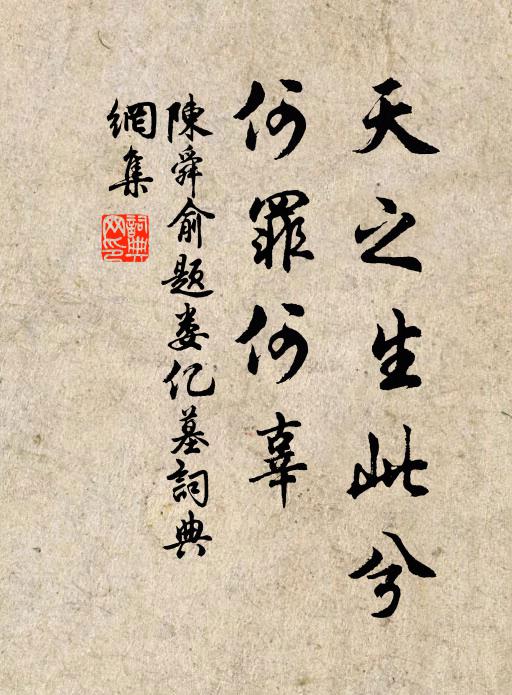 天之生此兮
何罪何辜
陳舜俞題娄亿墓詞典
網集
詞典
网印